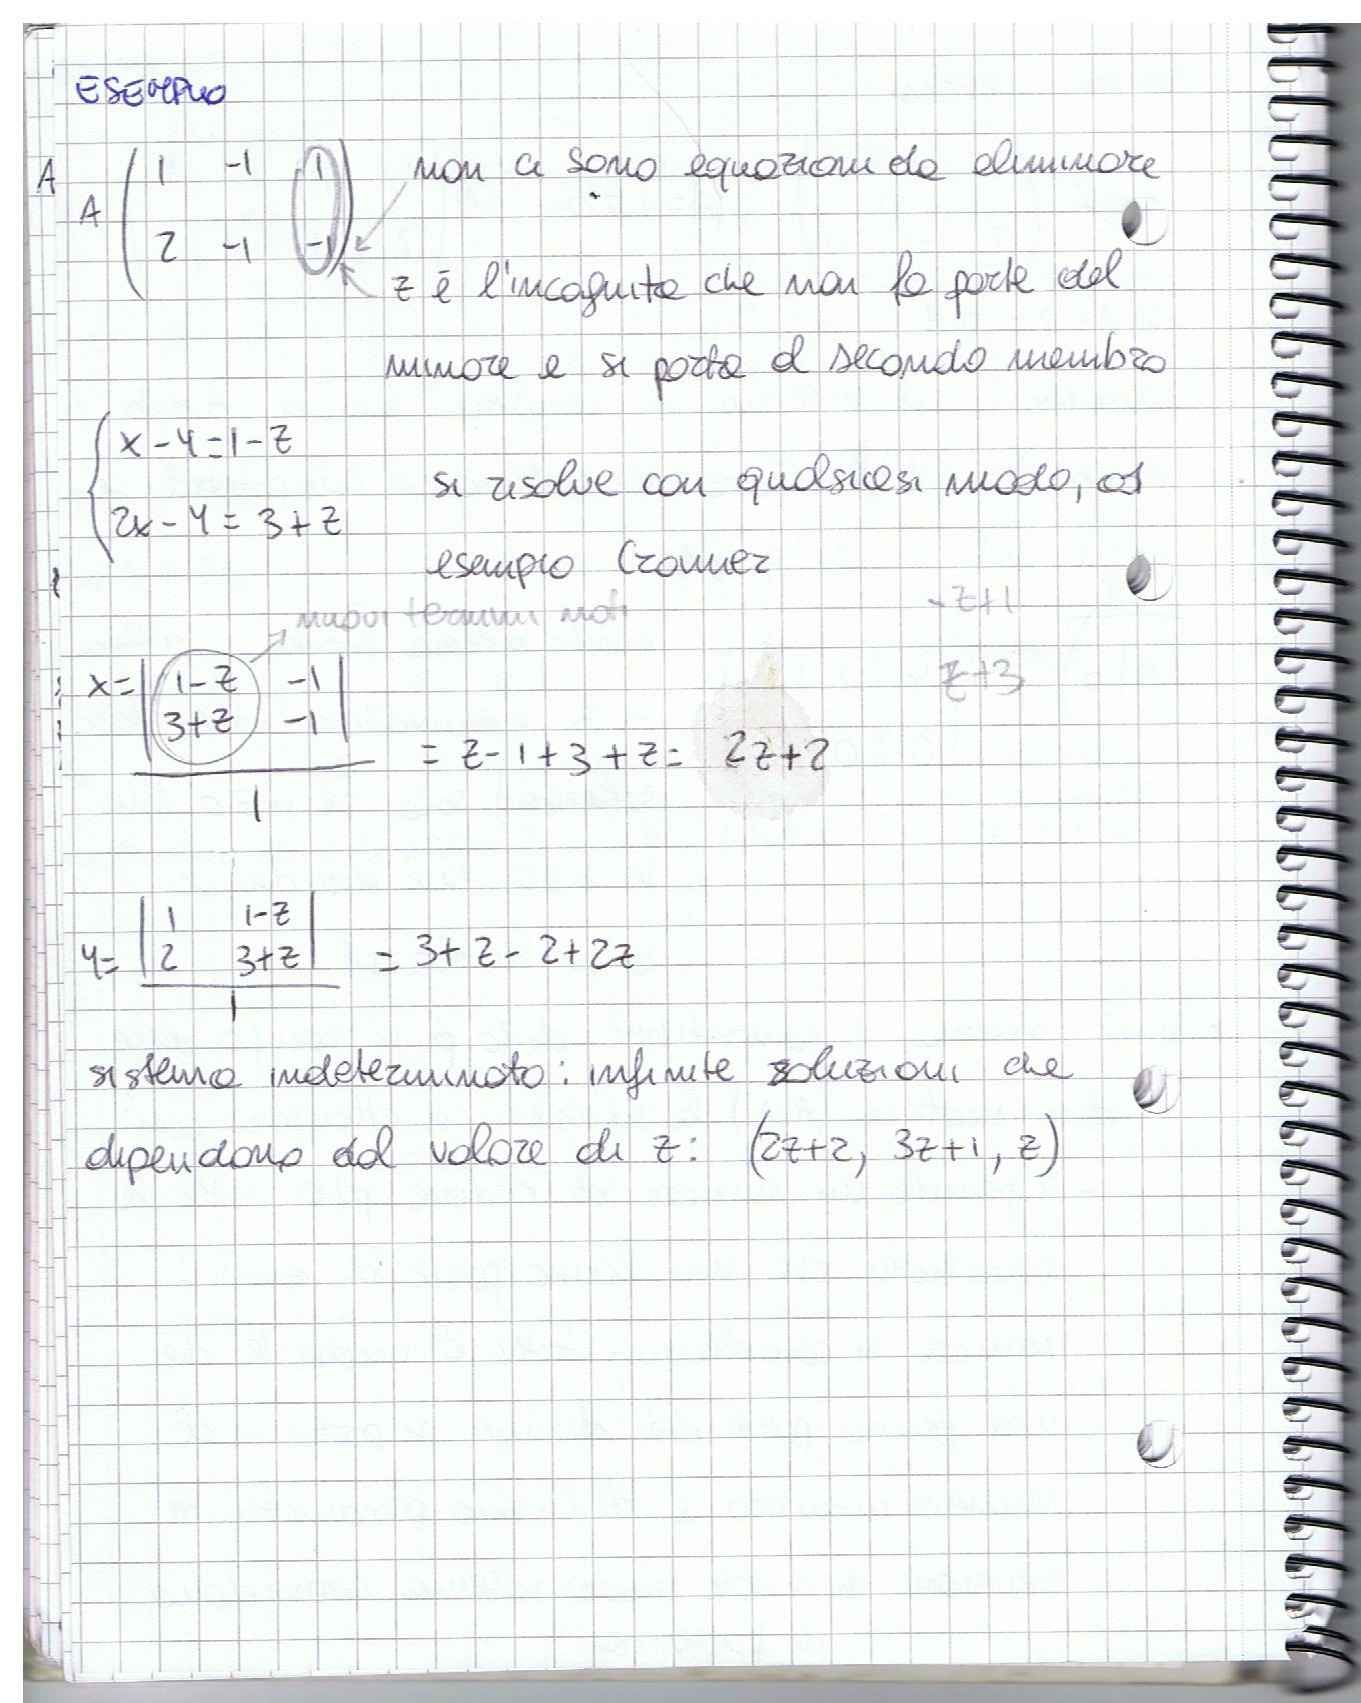 ESEMPIO
A
A ( 1 -1 1 ) non ci sono equazioni da eliminare
2 -1 -1
z è l'incognita che non fa parte del
minore e si porta al secondo membro
{ x - y = 1 - z
2x - y = 3 + z
si risolve con qualsiasi modo, ad
esempio Cramer
nuovi termini noti
- z + 1
z + 3
x = | 1-z -1 |
| 3+z -1 |
1
= z - 1 + 3 + z = 2z + 2
y = | 1 1-z |
| 2 3+z | = 3 + z - 2 + 2z
1
sistema indeterminato: infinite soluzioni che
dipendono dal valore di z: (2z+2, 3z+1, z)